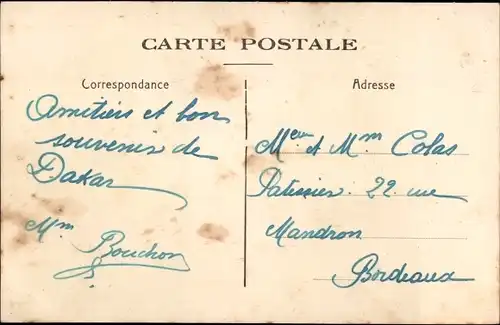 CARTE POSTALE
Correspondance
Amitiés et bon
souvenir de
Dakar
Mm Bouchon
Adresse
Meur et Mm Colas
Patissier. 22 rue
Mandron
Bordeaux